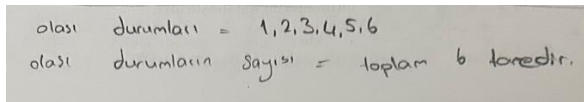 olası durumları = 1,2,3,4,5,6
olası durumların sayısı = toplam 6 tanedir.